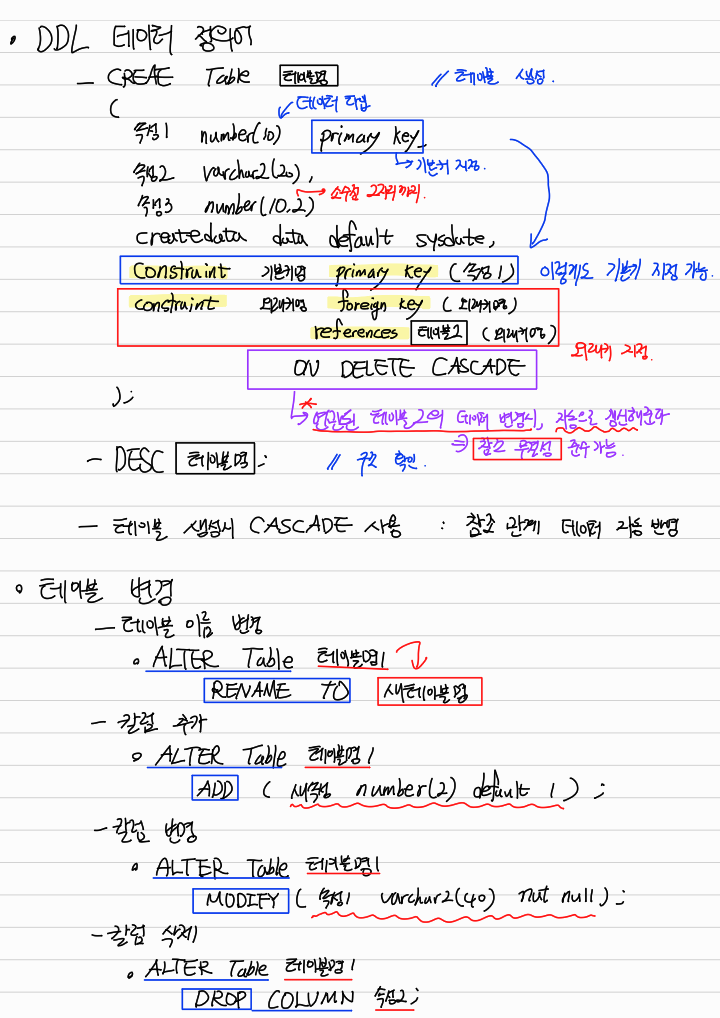 • DDL 데이터 정의어
– CREATE Table 테이블명 // 테이블 생성.
( 데이터 타입
속성1 number(10) primary key,
→ 기본키 지정.
속성2 varchar2(20),
→ 소수점 2자리까지.
속성3 number(10.2)
createdata data default sysdate,
Constraint 기본키명 primary key (속성1) 이렇게도 기본키 지정 가능.
constraint 외래키명 foreign key (외래키명)
references 테이블2 (외래키명)
외래키 지정.
ON DELETE CASCADE
);
→ 연관된 테이블2의 데이터 변경시, 자동으로 갱신해준다
⇒ 참조 무결성 준수 가능.
– DESC 테이블명; // 구조 확인.
– 테이블 생성시 CASCADE 사용 : 참조 관계 데이터 자동 반영
• 테이블 변경
– 테이블 이름 변경
• ALTER Table 테이블명1
RENAME TO 새테이블명
– 칼럼 추가
• ALTER Table 테이블명1
ADD ( 새속성 number(2) default 1 ) ;
– 칼럼 변경
• ALTER Table 테이블명1
MODIFY ( 속성1 varchar2(40) nut null ) ;
– 칼럼 삭제
• ALTER Table 테이블명1
DROP COLUMN 속성2 ;